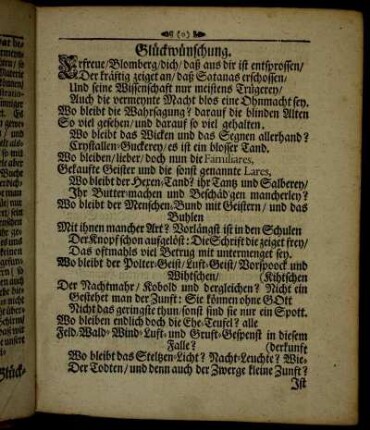 (o)
Glückwünschung.
Erfreue/Blomberg/dich/daß aus dir ist entsprossen/
Der kräftig zeiget an/daß Satanas erschossen/
Und seine Wissenschaft nur meistens Trügerey/
Auch die vermeynte Macht blos eine Ohnmacht sey.
Wo bleibt die Wahrsagung? darauf die blinden Alten
So viel gesehen/und darauf so viel gehalten.
Wo bleibt das Wicken und das Segnen allerhand?
Crystallen-Guckerey/es ist ein blosser Tand.
Wo bleiben/lieber/doch nun die Familiares,
Gekaufte Geister und die sonst genannte Lares,
Wo bleibt der Hexen-Tand? ihr Tantz und Salberey/
Ihr Butter-machen und Beschädgen mancherley?
Wo bleibt der Menschen-Bund mit Geistern/und das
Buhlen
Mit ihnen mancher Art? Vorlängst ist in den Schulen
Der Knopf schon aufgelöst: Die Schrift die zeiget frey/
Das oftmahls viel Betrug mit untermenget sey.
Wo bleibt der Polter-Geist/Luft-Geist/Vorspoock und
Wihtschen/ (Kihtschen
Der Nachtmahr/Kobold und dergleichen? Nicht ein
Gestehet man der Zunft: Sie können ohne GOtt
Nicht das geringste thun/sonst sind sie nur ein Spott.
Wo bleiben endlich doch die Ehe-Teufel? alle
Feld-Wald-Wind-Luft-und Gruft-Gespenst in diesem
Falle? (derkunft
Wo bleibt das Steltzen-Licht? Nacht-Leuchte? Wie-
Der Todten/und denn auch der Zwerge kleine Zunft?
Ist